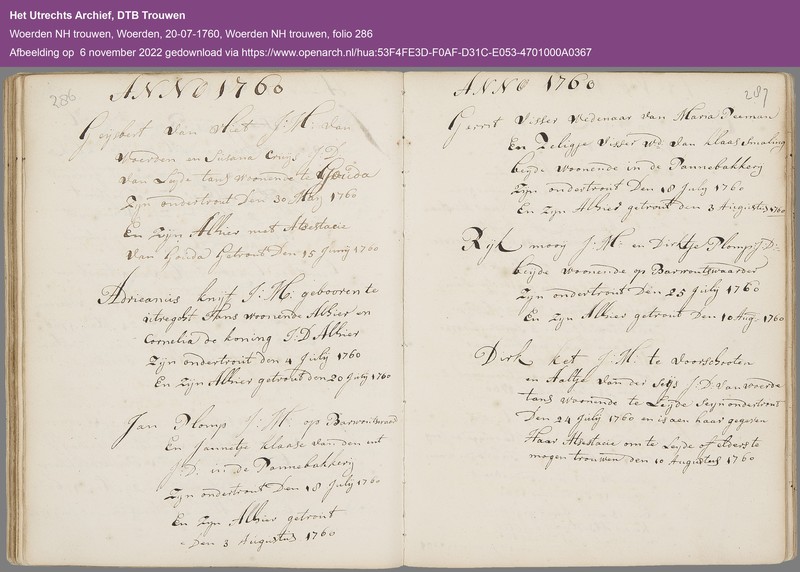 Het Utrechts Archief, DTB Trouwen
Woerden NH trouwen, Woerden, 20-07-1760, Woerden NH trouwen, folio 286
Afbeelding op 6 november 2022 gedownload via https://www.openarch.nl/hua:53F4FE3D-F0AF-D31C-E053-4701000A0367
286
ANNO 1760
Geysbert van Vliet J:M: van
Woerden en Susana Cruijs J:D:
van Leyde tans woonende te Gouda
Zyn ondertrout Den 30 May 1760
En Zijn Alhier met Atestacie
van Gouda Getrout Den 15 Junij 1760
Adrieanus knijf J:M: gebooren te
utreght thans woonende Alhier en
Cornelia de koning J:D Alhier
Zijn ondertrout den 4 July 1760
En Zijn Alhier getrout den 20 July 1760
Jan Plomp J:M: op
En Jannetje klaase van den
J:D: in de Pannebakkerij
Zyn ondertrout Den 18 July 1760
En Zyn Alhier getrout
Den 3 Augustus 1760
287
ANNO 1760
Gerrit Visser Wedenaar van Maria
En Visser wd van klaas
beyde woonende in de Pannebakkerij
Zyn ondertrout Den 18 July 1760
En Zyn Alhier getrout den 3 Augustus 1760
Rijk mooy J:M: en Dirktje Plomp J:D:
beyde woonende op Barwoutswaarder
Zyn ondertrout Den 25 July 1760
En Zyn Alhier getrout Den 10 Aug. 1760
Dirk ket J:M: te Voorschooten
en Aaltje van der J:D: van woerde
tans woonende te Leyde Seyn ondertrout
Den 24 July 1760 en is aen haar gegeven
Haar Atestacie om te Leyde of elders te
mogen trouwen den 10 Augustus 1760